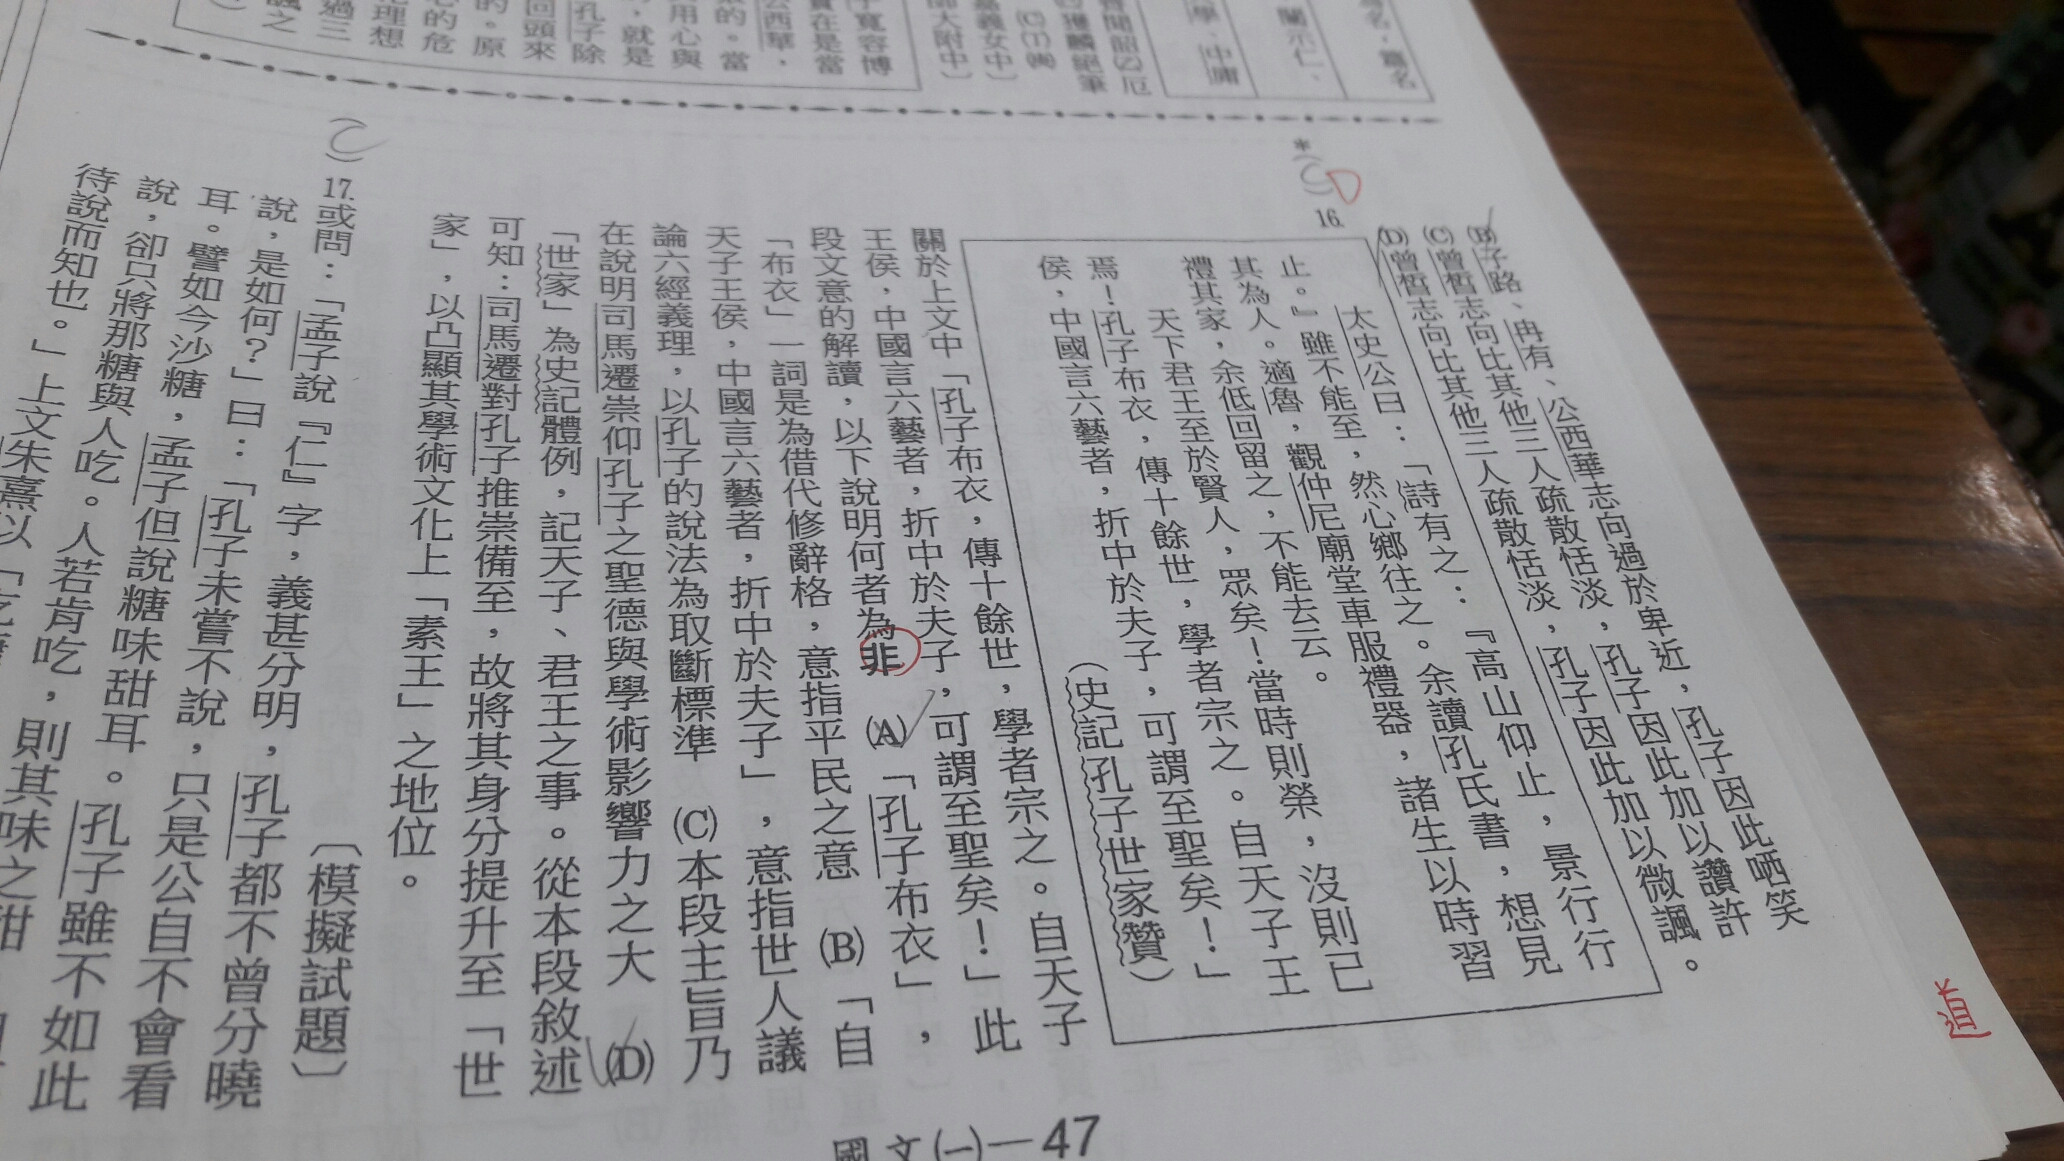 (B)子路、冉有、公西華志向過於卑近，孔子因此哂笑
(C)曾皙志向比其他三人疏散恬淡，孔子因此加以讚許
(D)曾皙志向比其他三人疏散恬淡，孔子因此加以微諷。
道
*(C)D
16.
太史公曰：「詩有之：『高山仰止，景行行
止。』雖不能至，然心鄉往之。余讀孔氏書，想見
其為人。適魯，觀仲尼廟堂車服禮器，諸生以時習
禮其家，余低回留之，不能去云。
天下君王至於賢人，眾矣！當時則榮，沒則已
焉！孔子布衣，傳十餘世，學者宗之。自天子王
侯，中國言六藝者，折中於夫子，可謂至聖矣！」
（史記孔子世家贊）
關於上文中「孔子布衣，傳十餘世，學者宗之。自天子
王侯，中國言六藝者，折中於夫子，可謂至聖矣！」此
段文意的解讀，以下說明何者為非 (A)「孔子布衣」，
「布衣」一詞是為借代修辭格，意指平民之意 (B)「自
天子王侯，中國言六藝者，折中於夫子」，意指世人議
論六經義理，以孔子的說法為取斷標準 (C)本段主旨乃
在說明司馬遷崇仰孔子之聖德與學術影響力之大 (D)
「世家」為史記體例，記天子、君王之事。從本段敘述
可知：司馬遷對孔子推崇備至，故將其身分提升至「世
家」，以凸顯其學術文化上「素王」之地位。
〔模擬試題〕
(C)17.或問：「孟子說『仁』字，義甚分明，孔子都不曾分曉
說，是如何？」曰：「孔子未嘗不說，只是公自不會看
耳。譬如今沙糖，孟子但說糖味甜耳。孔子雖不如此
說，卻只將那糖與人吃。人若肯吃，則其味之甜
待說而知也。」上文朱熹以
國文(一)—47